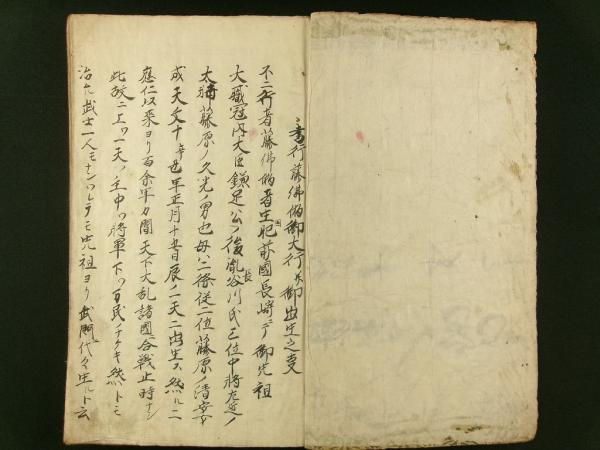 書行藤佛俻御大行并御出生之事
不二行者藤佛俻者生国肥前國長崎ニテ御先祖
大職冠内大臣鎌足公ノ後胤長谷川氏三位中将左近ノ
太輔藤原ノ久光ノ男也母ハ二条従二位藤原ノ清安女
成天文十辛丑年正月十五日辰ノ一天ニ出生ス然ルニ
應仁以来ヨリ百余年力間天下大乱諸國合戦止時ナシ
此故ニ上ハ一天ノ主中ハ将軍下ハ万民ノナケキ然トモ
治ル武士一人モナシ
先祖ヨリ武門代々生ルト云